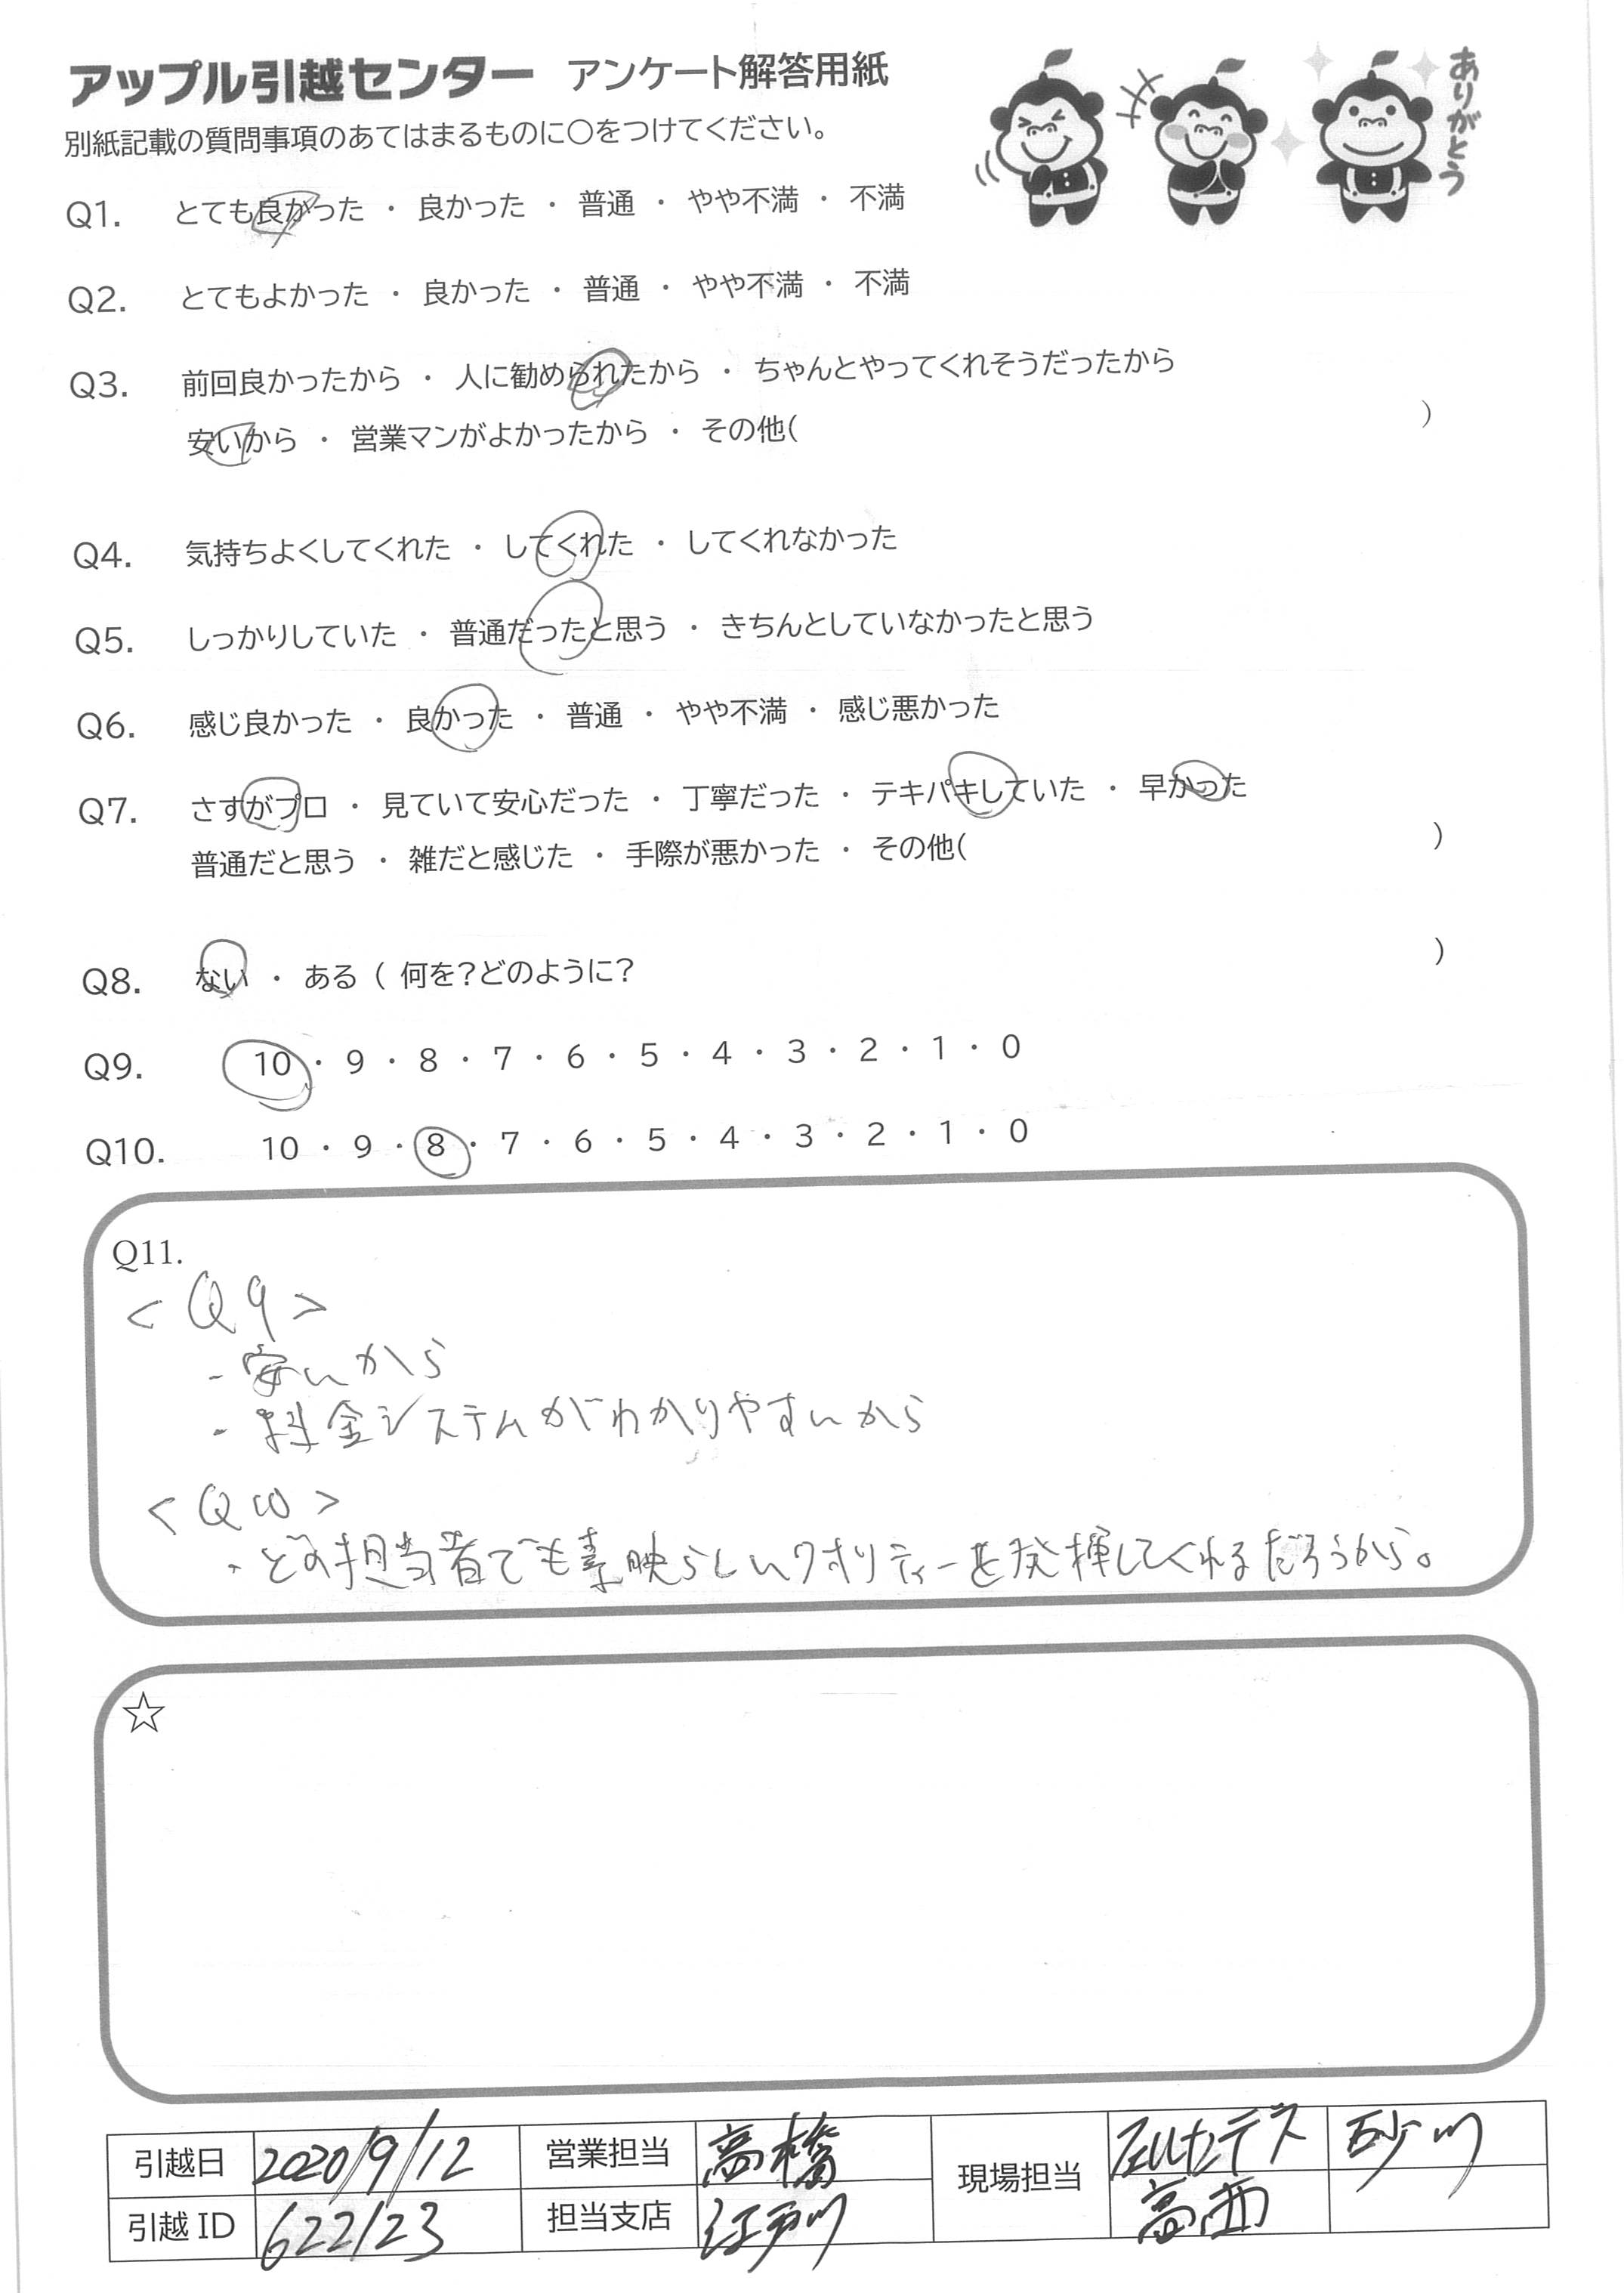 アップル引越センター アンケート解答用紙
ありがとう
別紙記載の質問事項のあてはまるものに○をつけてください。
Q1. とても良かった ・ 良かった ・ 普通 ・ やや不満 ・ 不満
Q2. とてもよかった ・ 良かった ・ 普通 ・ やや不満 ・ 不満
Q3. 前回良かったから ・ 人に勧められたから ・ ちゃんとやってくれそうだったから
安いから ・ 営業マンがよかったから ・ その他( )
Q4. 気持ちよくしてくれた ・ してくれた ・ してくれなかった
Q5. しっかりしていた ・ 普通だったと思う ・ きちんとしていなかったと思う
Q6. 感じ良かった ・ 良かった ・ 普通 ・ やや不満 ・ 感じ悪かった
Q7. さすがプロ ・ 見ていて安心だった ・ 丁寧だった ・ テキパキしていた ・ 早かった
普通だと思う ・ 雑だと感じた ・ 手際が悪かった ・ その他( )
Q8. ない ・ ある ( 何を?どのように? )
Q9. 10 ・ 9 ・ 8 ・ 7 ・ 6 ・ 5 ・ 4 ・ 3 ・ 2 ・ 1 ・ 0
Q10. 10 ・ 9 ・ 8 ・ 7 ・ 6 ・ 5 ・ 4 ・ 3 ・ 2 ・ 1 ・ 0
Q11.
<Q9>
- 安いから
- 料金システムがわかりやすいから
<Q10>
・どの担当者でも素晴らしいクオリティーを発揮してくれるだろうから。
☆
引越日 2020/9/12 営業担当 高橋 現場担当 砂川
引越ID 622123 担当支店 江戸川 高西